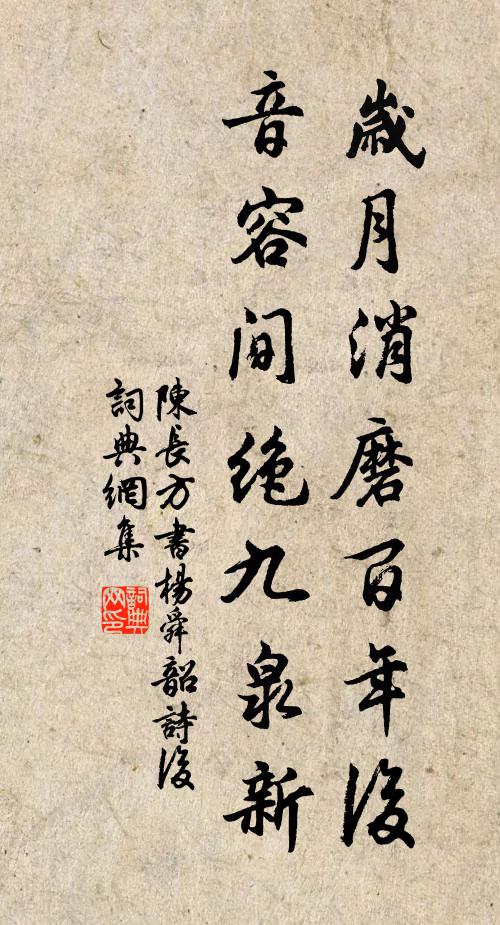 歲月消磨百年後
音容间绝九泉新
陳長方書楊舜韶詩後
詞典網集
詞典
网印